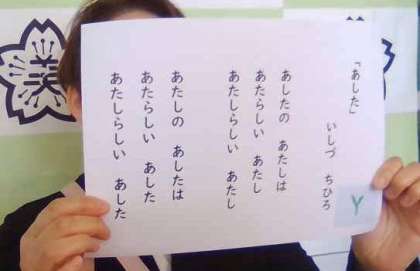 「あした」
いしづ ちひろ
あしたの あたしは
あたらしい あたし
あたしらしい あたし
あたしの あしたは
あたらしい あした
あたしらしい あした
Y